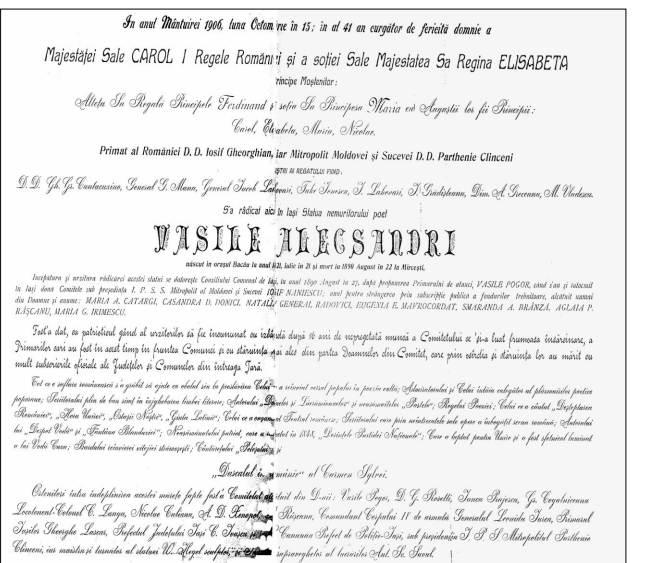 In anul Mântuirei 1906, luna Octomvrie în 15; în al 41 an curgător de fericită domnie a
Majestăței Sale CAROL I Regele Românii și a soției Sale Majestatea Sa Regina ELISABETA
rincipe Moștenitor:
Alteța Sa Regală Principele Ferdinand și soția Sa Principesa Maria cu Auguștii lor fii Principii:
Carol, Elisabeta, Maria, Nicolae.
Primat al României D. D. Iosif Gheorghian, iar Mitropolit Moldovei și Sucevei D. D. Parthenie Clinceni
IȘTRI AI REGATULUI FIIND:
D. D. Gh. Gr. Cantacuzino, General G. Manu, General Iacob Lahovari, Take Ionescu, I. Lahovari, I. Grădișteanu, Dim. A. Greceanu, M. Vlădescu.
S'a rădicat aici în Iași Statua nemuritorului poet
VASILE ALECSANDRI
născut în orașul Bacău la anul 1821, Iulie în 21 și mort la 1890 August în 22 la Mircești.
Inceputura și urzitura rădicărei acestei statui se datorește Consiliului Comunei de Iași, în anul 1890 August în 27, după propunerea Primarului de atunci, VASILE POGOR, când s'au și întocuit
în Iași două Comitete sub președința I. P. S. S. Mitropolit al Moldovei și Sucevei IOSIF NANIESCU; unul pentru strângerea prin subscripție publică a fondurilor trebuitoare, alcătuit numai
din Doamne și anume: MARIA A. CATARGI, CASANDRA D. DONICI, NATALIA GENERAL RADOVICI, EUGENIA E. MAVROCORDAT, SMARANDA A. BRÂNZĂ, AGLAIA P.
RĂȘCANU, MARIA G. IRIMESCU.
Fost'a dat, ca patrioticul gând al urzitorilor să fie însumunat cu izbândă după 16 ani de nepregetată muncă a Comitetului ce și-a luat frumoasa însărcinare, a
Primarilor cari au fost în acest timp în fruntea Comunei și cu stăruința mai ales din partea Doamnelor din Comitet, care prin osîrdia și stăruința lor au mărit cu
mult subscripțiile oficiale ale Județelor și Comunelor din întreaga Țară.
Tot ce e suflare românească s'a grăbit să ajute cu obolul său la preslăvirea Celui a scînteiat versul popular în poezia cultă; Admiratorului și Celui întâiu culegător al plăsmuirilor poetice
poporane; Scriitorului plin de haz sînt în înjghebarea limbei literare; Autorului „Doinelor și Lăcrămioarelor” și nemuritoarelor „Pastele”, Regelui Poeziei; Celui ce a cântat „Deșteptarea
României”, „Hora Unirei”, „Ostașii Noștri”, „Gintea Latină”; Celui ce a organizat Teatrul românesc; Scriitorului care prin neîntrecutele sale opere a îmbogățit scena română; Autorului
lui „Despot Vodă” și „Fântâna Blanduziei”; Neasemănatului patriot, care a în 1848, „Dorințele Partidei Naționale”; Care a luptat pentru Unire și a fost sfetnicul luminat
a lui Vodă Cuza; Bardului reînvierei vitejiei strămoșești; Cântărețului „Peleșului” și
„Dascălul în românie” al Carmen Sylvei.
Ostenitori întru îndeplinirea acestei mărețe fapte fost'a Comitetul alcătuit din D-nii: Vasile Pogor, D. G. Rosetti, Iancu Prăjescu, Gr. Cogălniceanu
Locotenent-Colonel C. Langa, Nicolae Culianu, A. D. Xenopol, Râșcanu, Comandant Corpului IV de armată Generalul Leonida Iarca, Primarul
Iașilor Gheorghe Lascar, Prefectul Județului Iași C. Cananau Prefect de Poliție-Iași, sub președinția I P S Mitropolitul Parthenie
Clinceni, iar maistru și tăsnuitor al statuei W. Hegel sculptor, și supraveghetor al lucrărilor Ant. Sc. Savul.